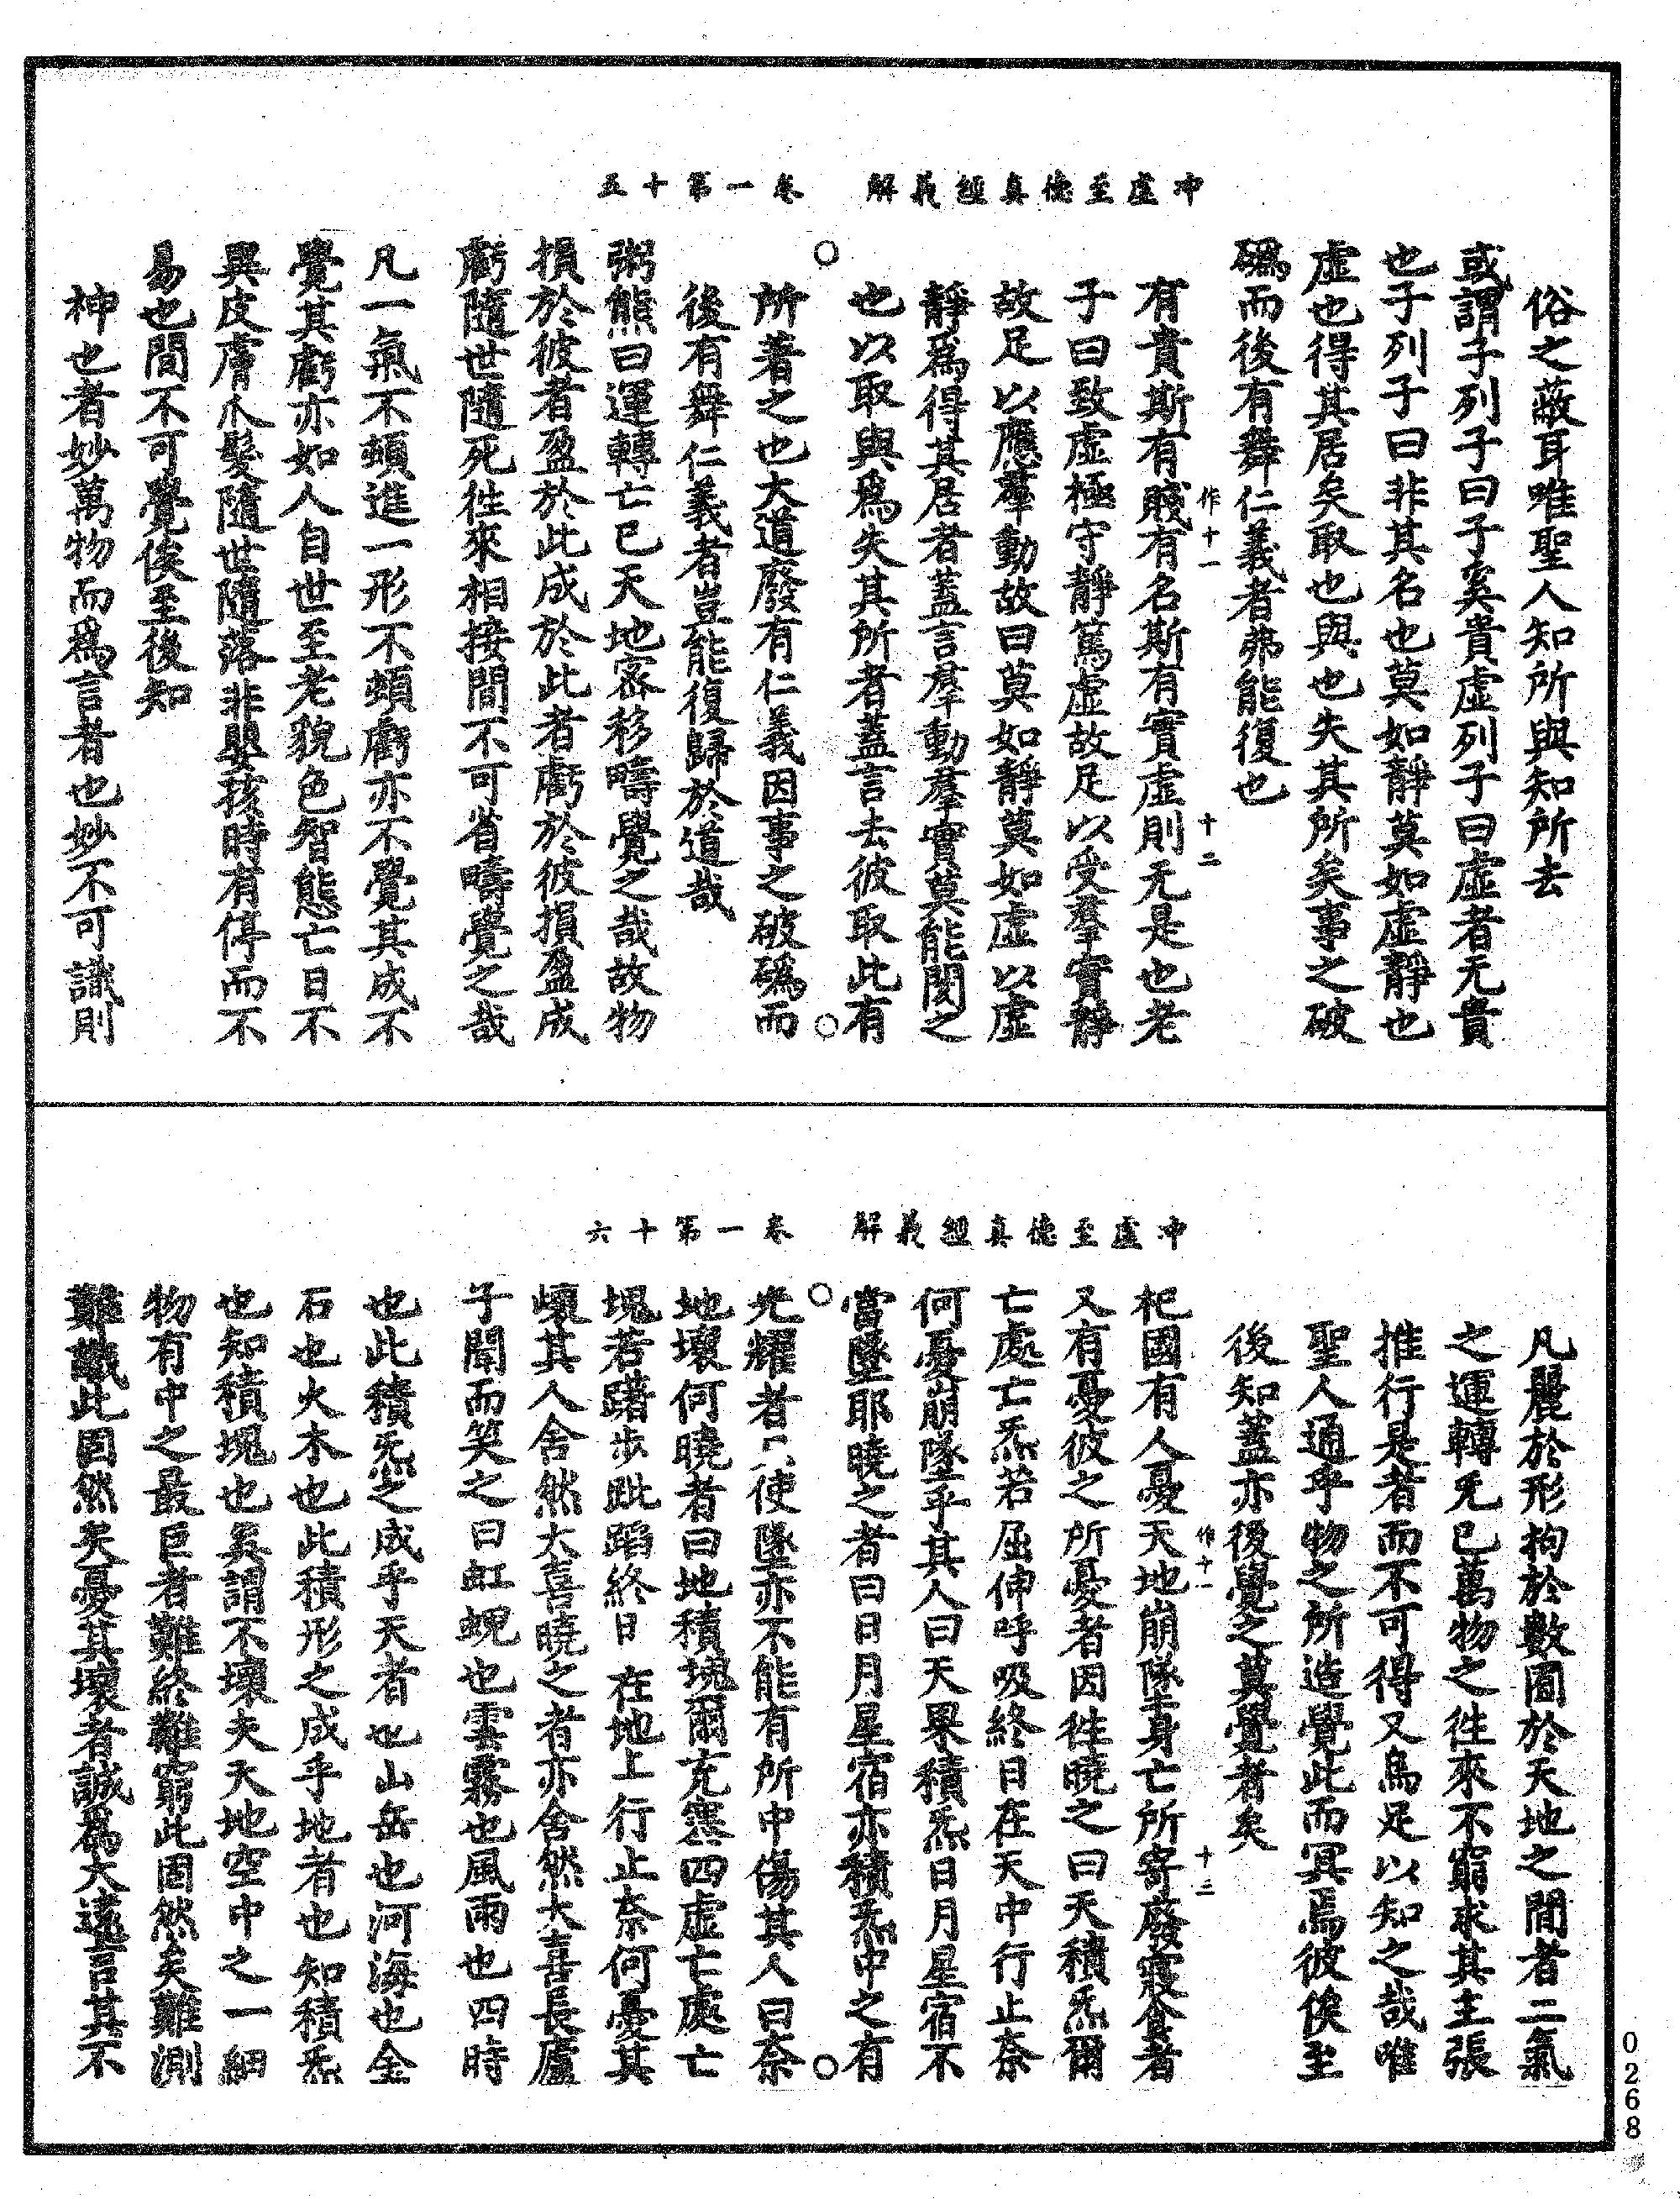 冲虛至德真經義解　卷一第十五
俗之蔽耳唯聖人知所與知所去
或謂子列子曰子奚貴虛列子曰虛者无貴
也子列子曰非其名也莫如靜莫如虛靜也
虛也得其居矣取也與也失其所矣事之破
䃣而後有舞仁義者弗能復也
作十一　十二
有貴斯有賤有名斯有實虛則无是也老
子曰致虛極守靜篤虛故足以受羣實靜
故足以應羣動故曰莫如靜莫如虛以虛
靜爲得其居者蓋言羣動羣實莫能閡之
也以取與爲失其所者蓋言去彼取此有
所著之也大道廢有仁義因事之破䃣而
後有舞仁義者豈能復歸於道哉
粥熊曰運轉亡已天地密移疇覺之哉故物
損於彼者盈於此成於此者虧於彼損盈成
虧隨世隨死往來相接間不可省疇覺之哉
凡一氣不頓進一形不頓虧亦不覺其成不
覺其虧亦如人自世至老貌色智態亡日不
異皮膚爪髮隨世隨落非嬰孩時有停而不
易也間不可覺俟至後知
神也者妙萬物而爲言者也妙不可識則
冲虛至德真經義解　卷一第十六
凡麗於形拘於數圍於天地之間者二氣
之運轉无已萬物之往來不窮求其主張
推行是者而不可得又烏足以知之哉唯
聖人通乎物之所造覺此而冥焉彼俟至
後知蓋亦後覺之莫覺者矣
作十一　十三
杞國有人憂天地崩墜身亡所寄廢寢食者
又有憂彼之所憂者因往曉之曰天積炁爾
亡處亡炁若屈伸呼吸終日在天中行止奈
何憂崩墜乎其人曰天果積炁日月星宿不
當墜耶曉之者曰日月星宿亦積炁中之有
光耀者只使墜亦不能有所中傷其人曰奈
地壞何曉者曰地積塊爾充塞四虛亡處亡
塊若躇步跐蹈終日在地上行止奈何憂其
壞其人舍然大喜曉之者亦舍然大喜長廬
子聞而笑之曰虹蜺也雲霧也風雨也四時
也此積炁之成乎天者也山岳也河海也金
石也火木也此積形之成乎地者也知積炁
也知積塊也奚謂不壞夫天地空中之一細
物有中之最巨者難終難窮此固然矣難測
難識此固然矣憂其壞者誠爲大遠言其不
0268